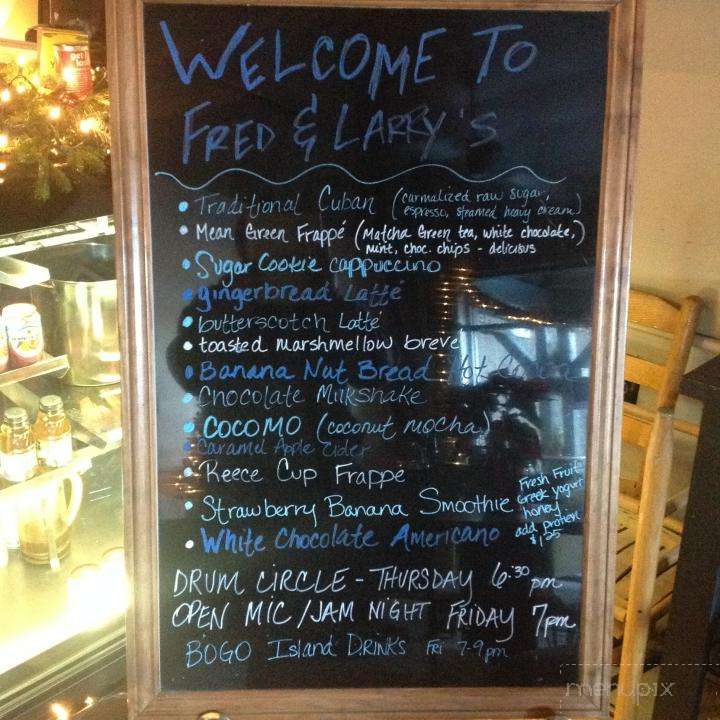 WELCOME TO
FRED & LARRY'S
• Traditional Cuban (carmalized raw sugar,
espresso, steamed heavy cream)
• Mean Green Frappé (Matcha Green tea, white chocolate,)
mint, choc. chips - delicious
• Sugar Cookie cappuccino
• gingerbread Latté
• butterscotch Latté
• toasted marshmellow breve
• Banana Nut Bread Hot
• Chocolate Milkshake
• COCOMO (coconut mocha)
• Caramel Apple Cider
• Reece Cup Frappé
• Strawberry Banana Smoothie
Fresh Fruit
Greek yogurt
honey
add protein
• White Chocolate Americano
DRUM CIRCLE - THURSDAY 6:30 pm
OPEN MIC/JAM NIGHT FRIDAY 7pm
BOGO Island DRINKS Fri 7-9pm
menupix